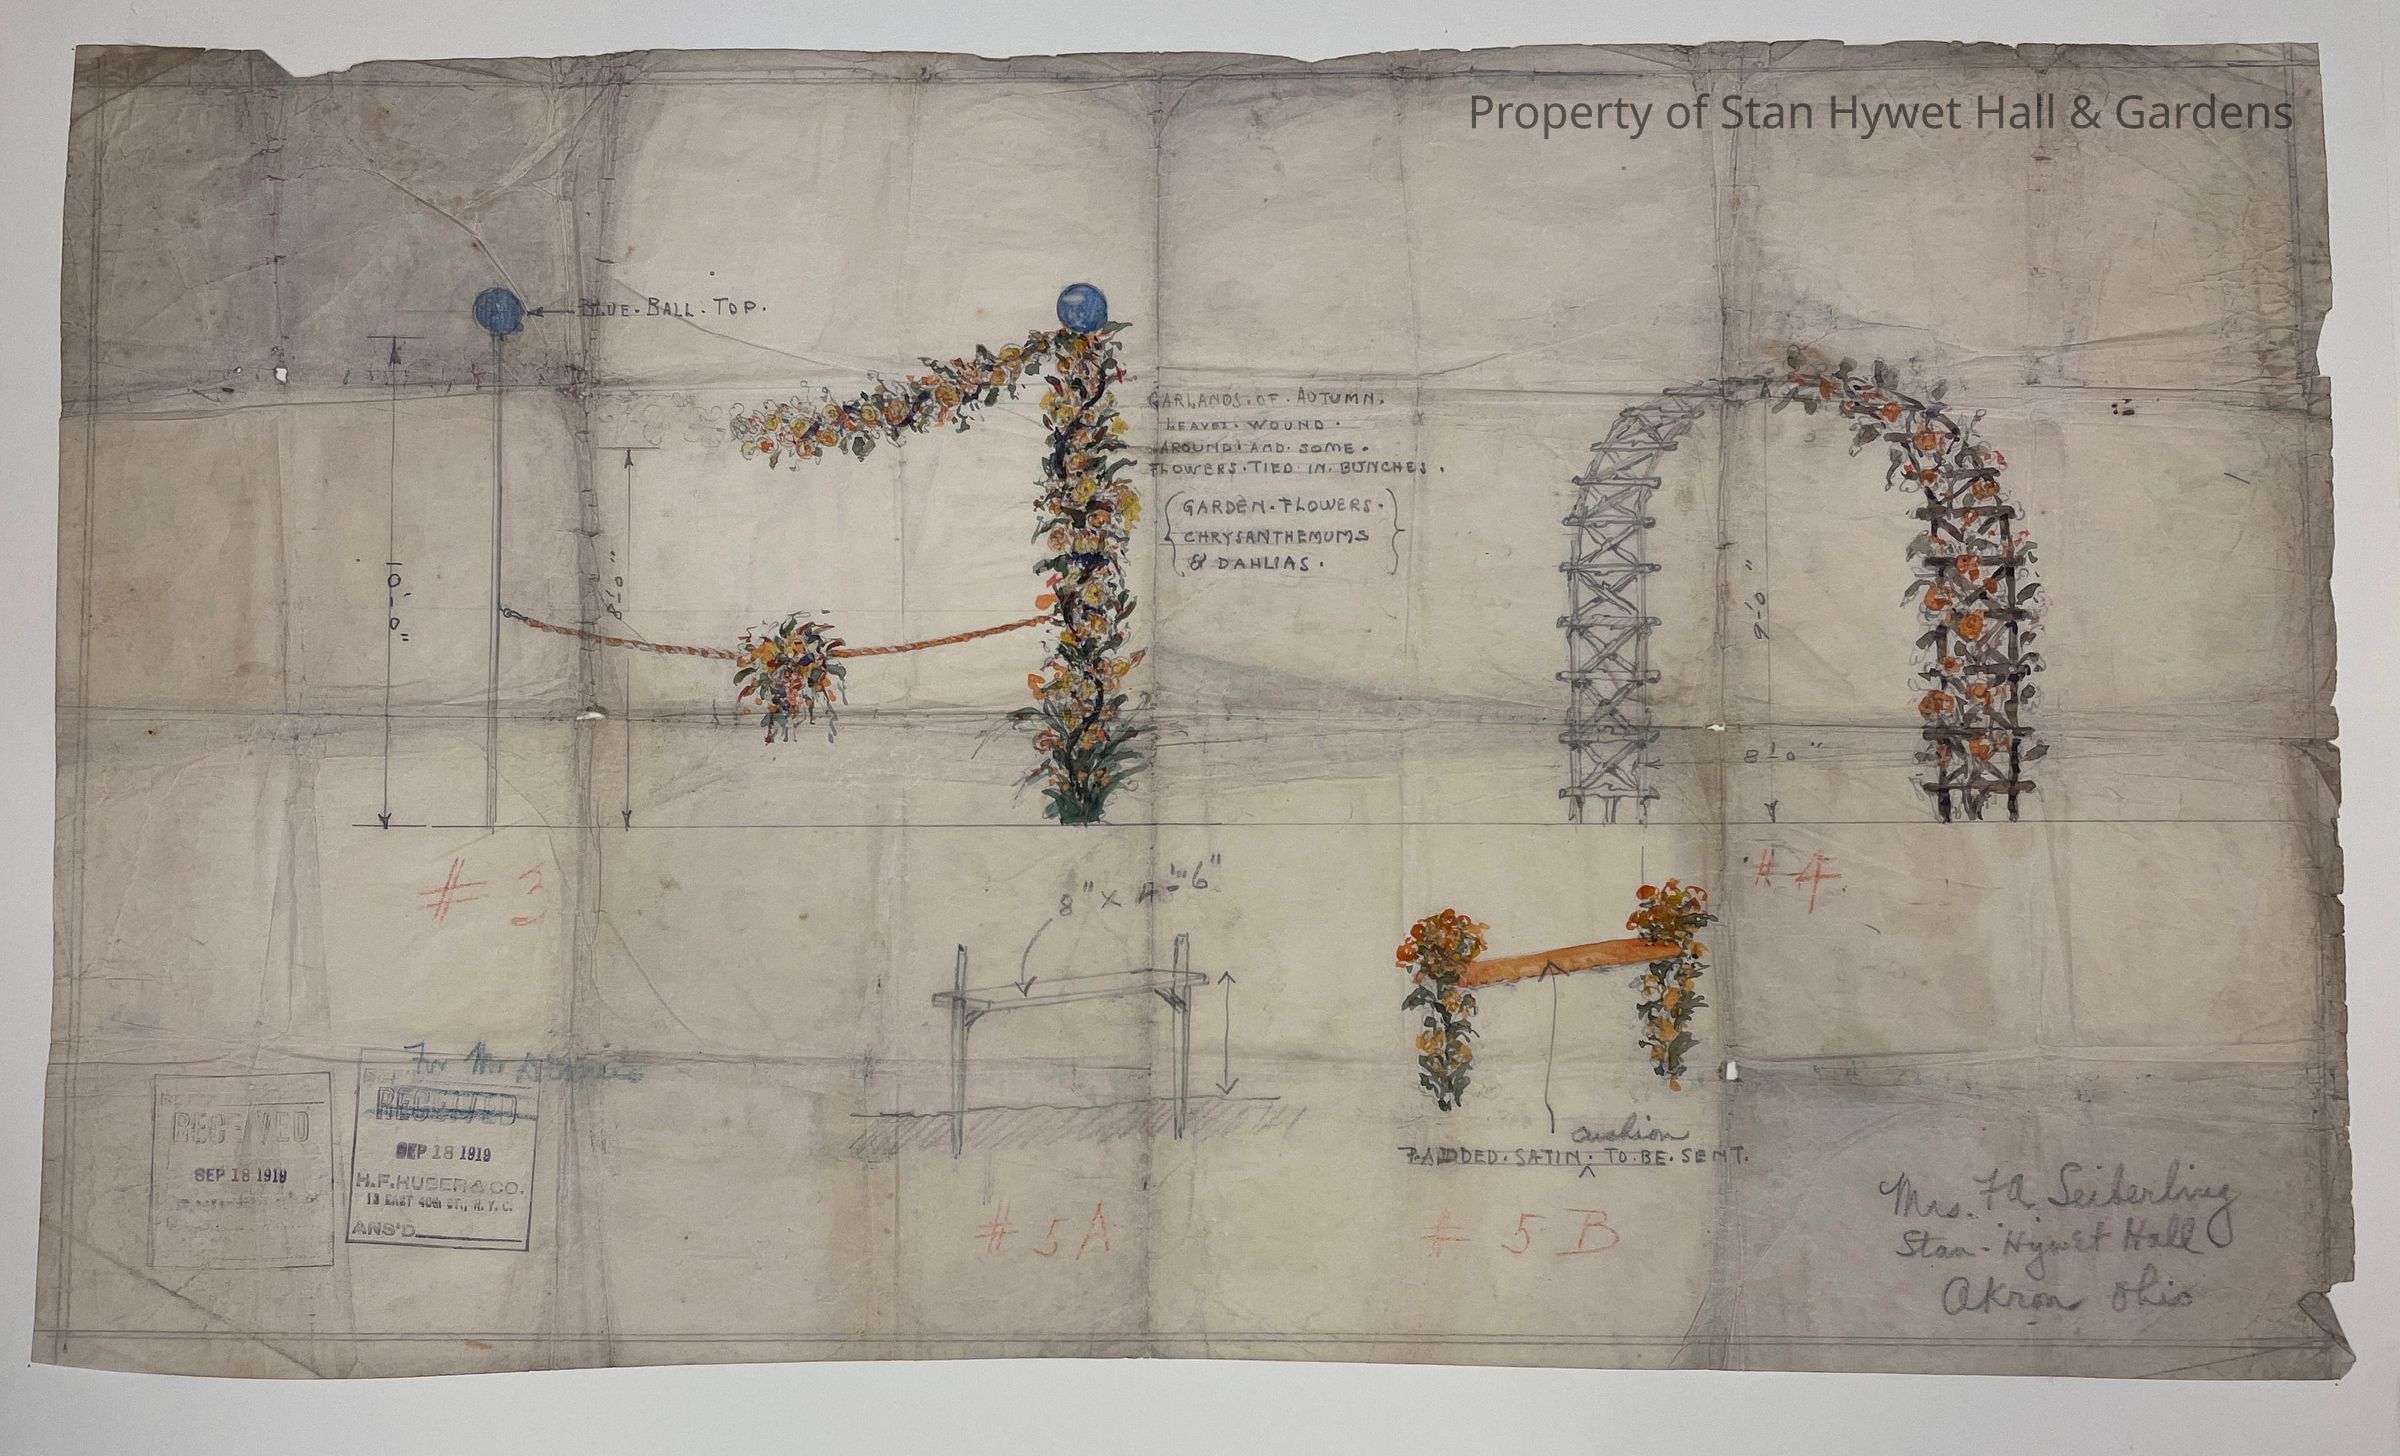 Property of Stan Hywet Hall & Gardens
BLUE. BALL. TOP.
10'-0"
8'-0"
GARLANDS. OF. AUTUMN.
LEAVES. WOUND.
AROUND. AND. SOME.
FLOWERS. TIED. IN. BUNCHES.
GARDEN. FLOWERS.
CHRYSANTHEMUMS
& DAHLIAS.
9'-0"
8'-0"
# 3
# 4
8" X
For Mr
RECEIVED
SEP 18 1919
RECEIVED
SEP 18 1919
H.F. HUBER & CO.
13 EAST 40th ST., N.Y.C.
ANS'D
cushion
PADDED. SATIN. ^ TO. BE. SENT.
# 5A
# 5 B
Mrs. F A Seiberling
Stan-Hywet Hall
Akron Ohio